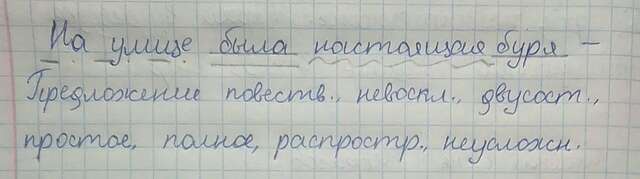 На улице была настоящая буря –
Предложение повеств., невоскл., двусост.,
простое, полное, распростр., неусложн.